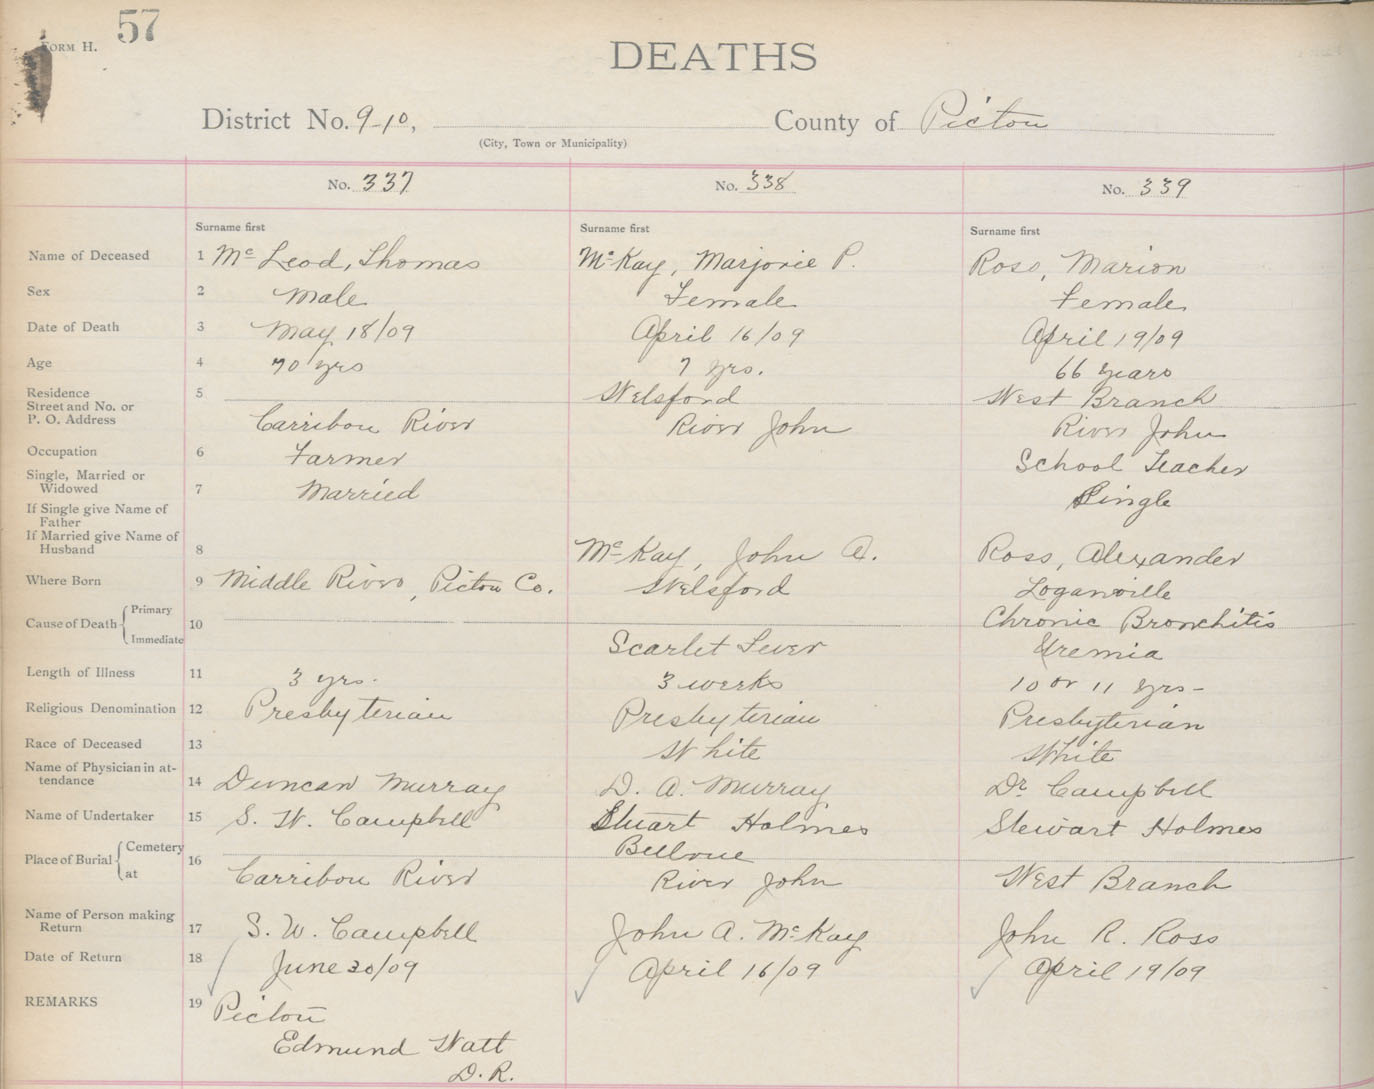 57
FORM H.
DEATHS
District No. 9-10,
(City, Town or Municipality)
County of Pictou
No. 337
No. 338
No. 339
Surname first
Surname first
Surname first
Name of Deceased 1 Mc Leod, Thomas
McKay, Marjorie P.
Ross, Marion
Sex 2 Male
Female
Female
Date of Death 3 May 18/09
April 16/09
April 19/09
Age 4 70 yrs
7 yrs.
66 years
Residence 5
Street and No. or
P. O. Address
Carribou River
Welsford
River John
West Branch
River John
Occupation 6 Farmer
School Teacher
Single, Married or
Widowed 7 Married
Single
If Single give Name of
Father
If Married give Name of
Husband 8
McKay, John A.
Ross, Alexander
Where Born 9 Middle River, Pictou Co.
Welsford
Loganville
Cause of Death Primary 10
Immediate
Scarlet Fever
Chronic Bronchitis
Uremia
Length of Illness 11 3 yrs.
3 weeks
10 or 11 yrs-
Religious Denomination 12 Presbyterian
Presbyterian
Presbyterian
Race of Deceased 13
White
White
Name of Physician in at-
tendance 14 Duncan Murray
D. A. Murray
Dr. Campbell
Name of Undertaker 15 S. W. Campbell
Stuart Holmes
Stewart Holmes
Place of Burial Cemetery 16
at
Carribou River
Bellvue
River John
West Branch
Name of Person making
Return 17 S. W. Campbell
John A. McKay
John R. Ross
Date of Return 18 June 30/09
April 16/09
April 19/09
REMARKS 19 Pictou
Edmund Watt
D.R.